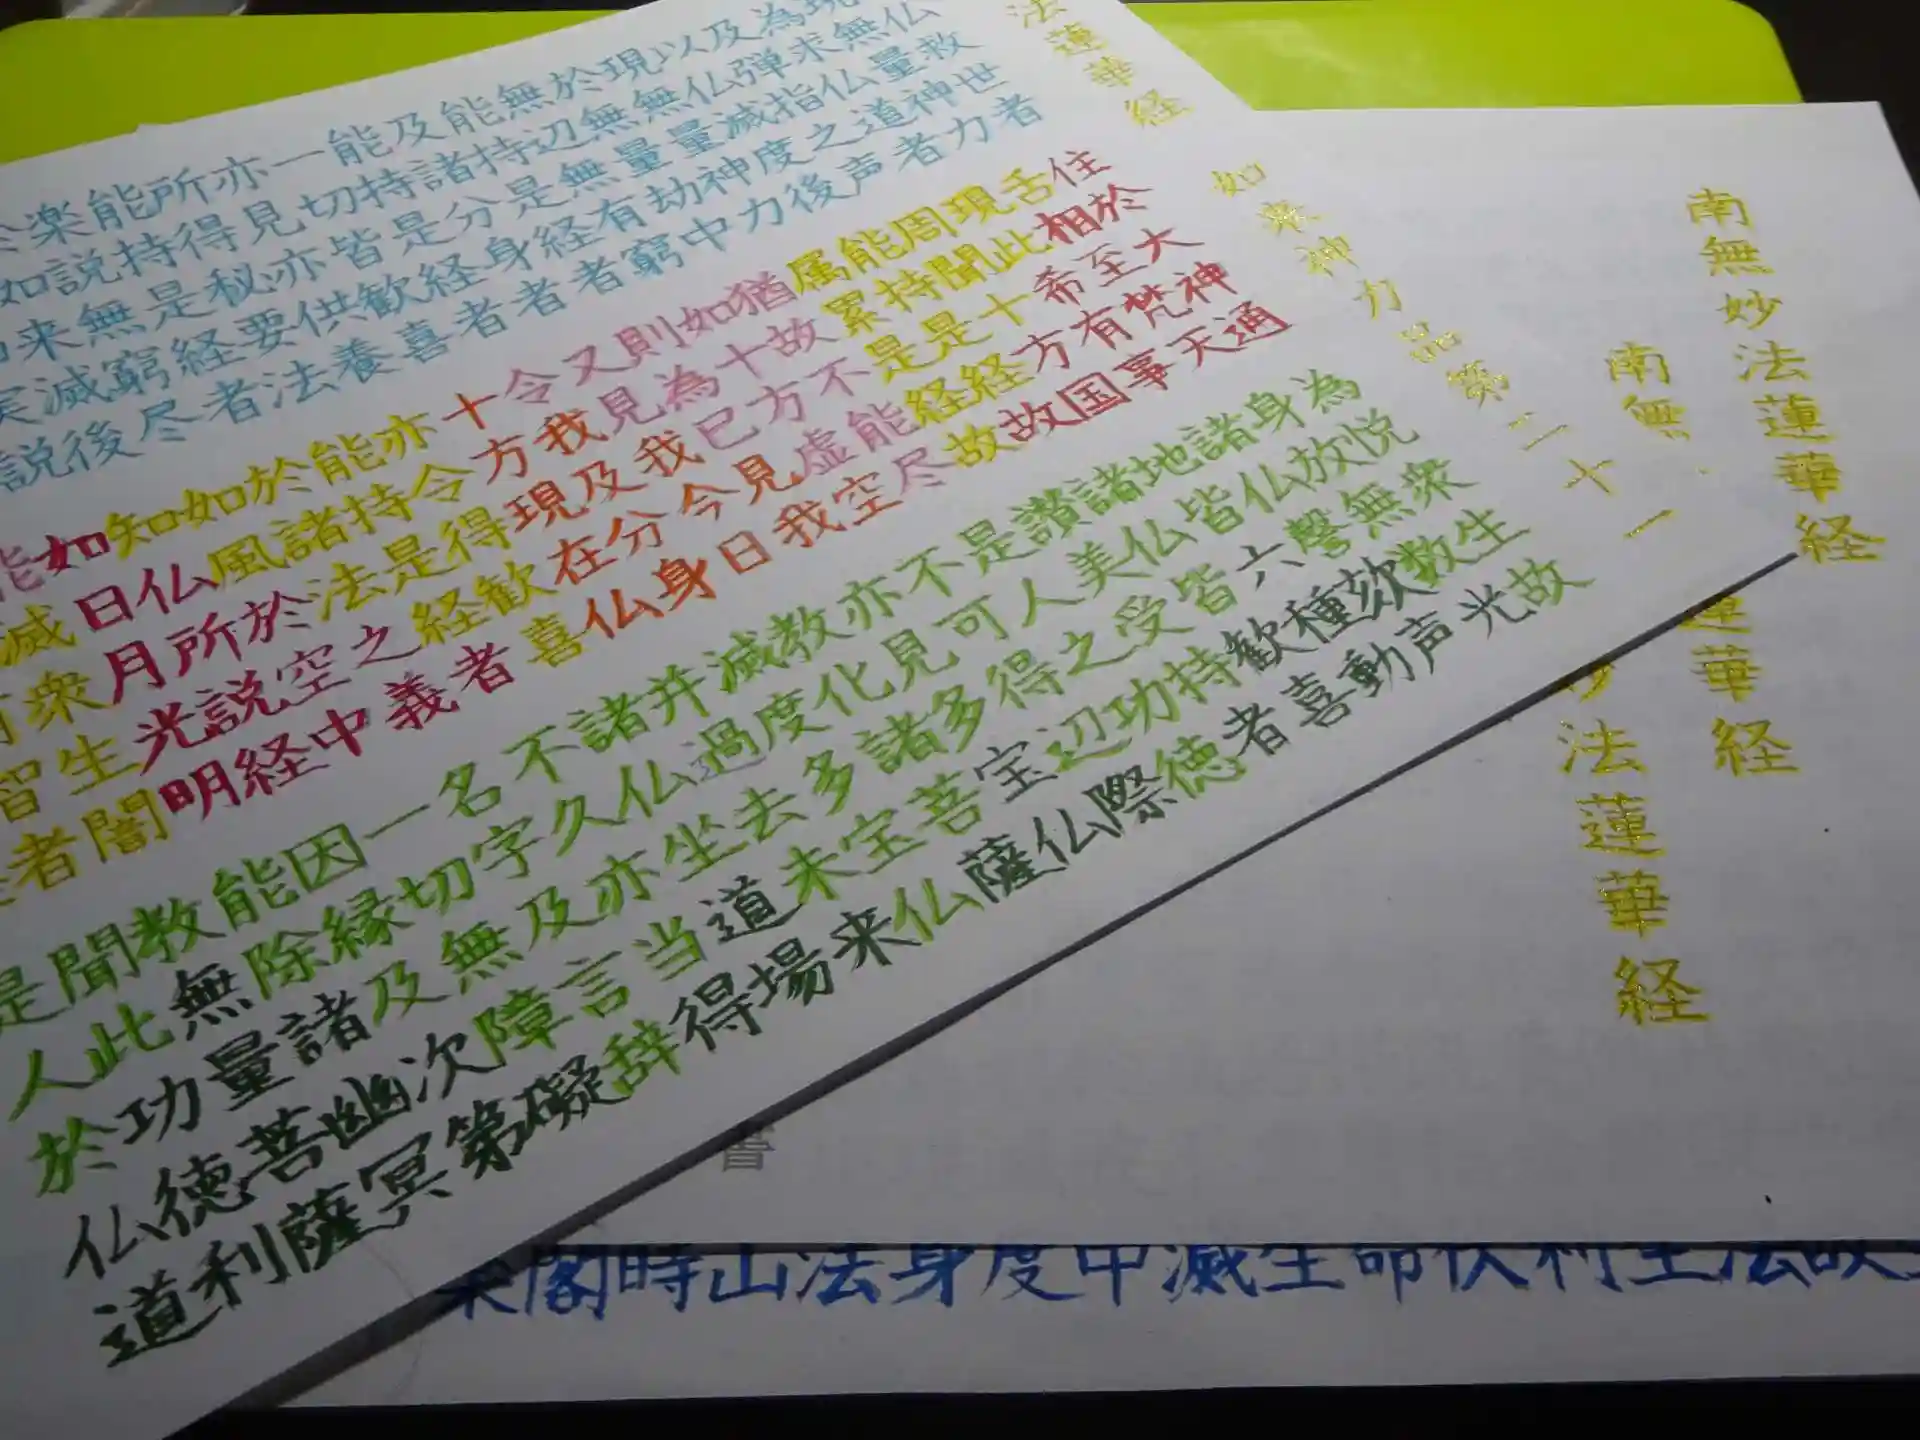 南無妙法蓮華経
蓮華経
南無
法蓮華経
法蓮華経
如来神力品第二十一
仏救世者 住於大神通 為悦衆生故
現無量神力 舌相至梵天 身放無数光
為求仏道者 現此希有事 諸仏謦欬声
及弾指之声 周聞十方国 地皆六種動
以仏滅度後 能持是経故 諸仏皆歓喜
現無量神力 属累是経故 讃美受持者
於無量劫中 猶故不能尽 是人之功徳
無辺無有窮 如十方虚空 不可得辺際
能持是経者 則為已見我 亦見多宝仏
及諸分身者 又見我今日 教化諸菩薩
能持是経者 令我及分身 滅度多宝仏
一切皆歓喜 十方現在仏 并過去未来
亦見亦供養 亦令得歓喜 諸仏坐道場
所得秘要法 不久亦当得
能持是経者 於諸法之義 名字及言辞
楽説無窮尽 如風於空中 一切無障礙
於如来滅後 知仏所説経 因縁及次第
如実説 如日月光明 能除諸幽冥
能滅衆生闇 教無量菩薩
智者 聞此功徳利
是人於仏道
閣時山法身度中滅生命